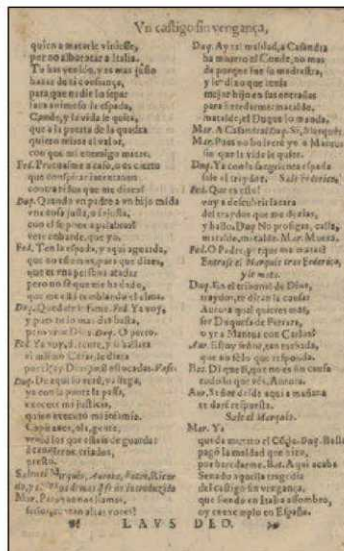 Vn castigo sin vengança,
quien a matarle viniesse,
por no alborotar a Italia.
Tu has venido, y es mas justo
hazer de ti confiança,
para que nadie lo sepa:
saca animoso la espada,
Conde, y la vida le quita,
que a la puerta de la quadra
quiero mirar el valor,
con que mi enemigo matas.
Fed. Prueuasme acaso, o es cierto
que conspirar intentauan
contra ti los que me dizes?
Duq. Quando vn padre a vn hijo manda
vna cosa justa, o injusta,
con el se pone a palabras?
vete cobarde, que yo.
Fed. Ten la espada, y aqui aguarda,
que no es temor, pues que dizes,
que es vna persona atada:
pero no sè que me ha dado,
que me està temblando el alma.
Duq. Quedate infame. Fed. Ya voy,
Fed. Ya voy,
Duq. De aqui lo verè, ya llega,
ya con la punta la passa,
execute mi justicia,
quien executò mi infamia.
Capitanes, ola, gente,
venid los que estais de guarda:
a caualleros criados,
presto.
Mar. Para que nos llamas,
señor, con tan altas vozes?
Duq. Ay tal maldad, a Casandra
ha muerto el Conde, no mas
de porque fue su madrastra,
y le dixo que tenia
mejor hijo en sus entrañas
para heredarme: matalde,
matalde, el Duque lo manda.
Mar. A Casandra? Duq. Si, Marques.
Mar. Pues no bolverè yo a Mantua
sin que la vida le quite.
Duq. Ya con la sangrienta espada
sale el traydor. Sale Federico.
Fed. Que es esto?
voy a descubrir la cara
del traydor que me dezias,
y hallo. Duq. No prosigas, calla,
matalde, matalde. Mar. Muera.
Fed. O Padre, porque me matas?
Duq. En el tribunal de Dios,
traydor, te diran la causa:
Aurora qual quieres mas,
ser Duquesa de Ferrara,
o yr a Mantua con Carlos?
Aur. Estoy señor, tan turbada,
que no sè lo que responda.
Aur. Señor desde aqui a mañana
te darè respuesta.
Sale el Marques.
Mar. Ya
queda muerto el Cõde. Duq. Basta
pagò la maldad que hizo,
por heredarme. Bat. Aqui acaba
Senado aquella tragedia
del castigo sin vengança,
que siendo en Italia assombro,
oy es exemplo en España.
LAVS DEO.